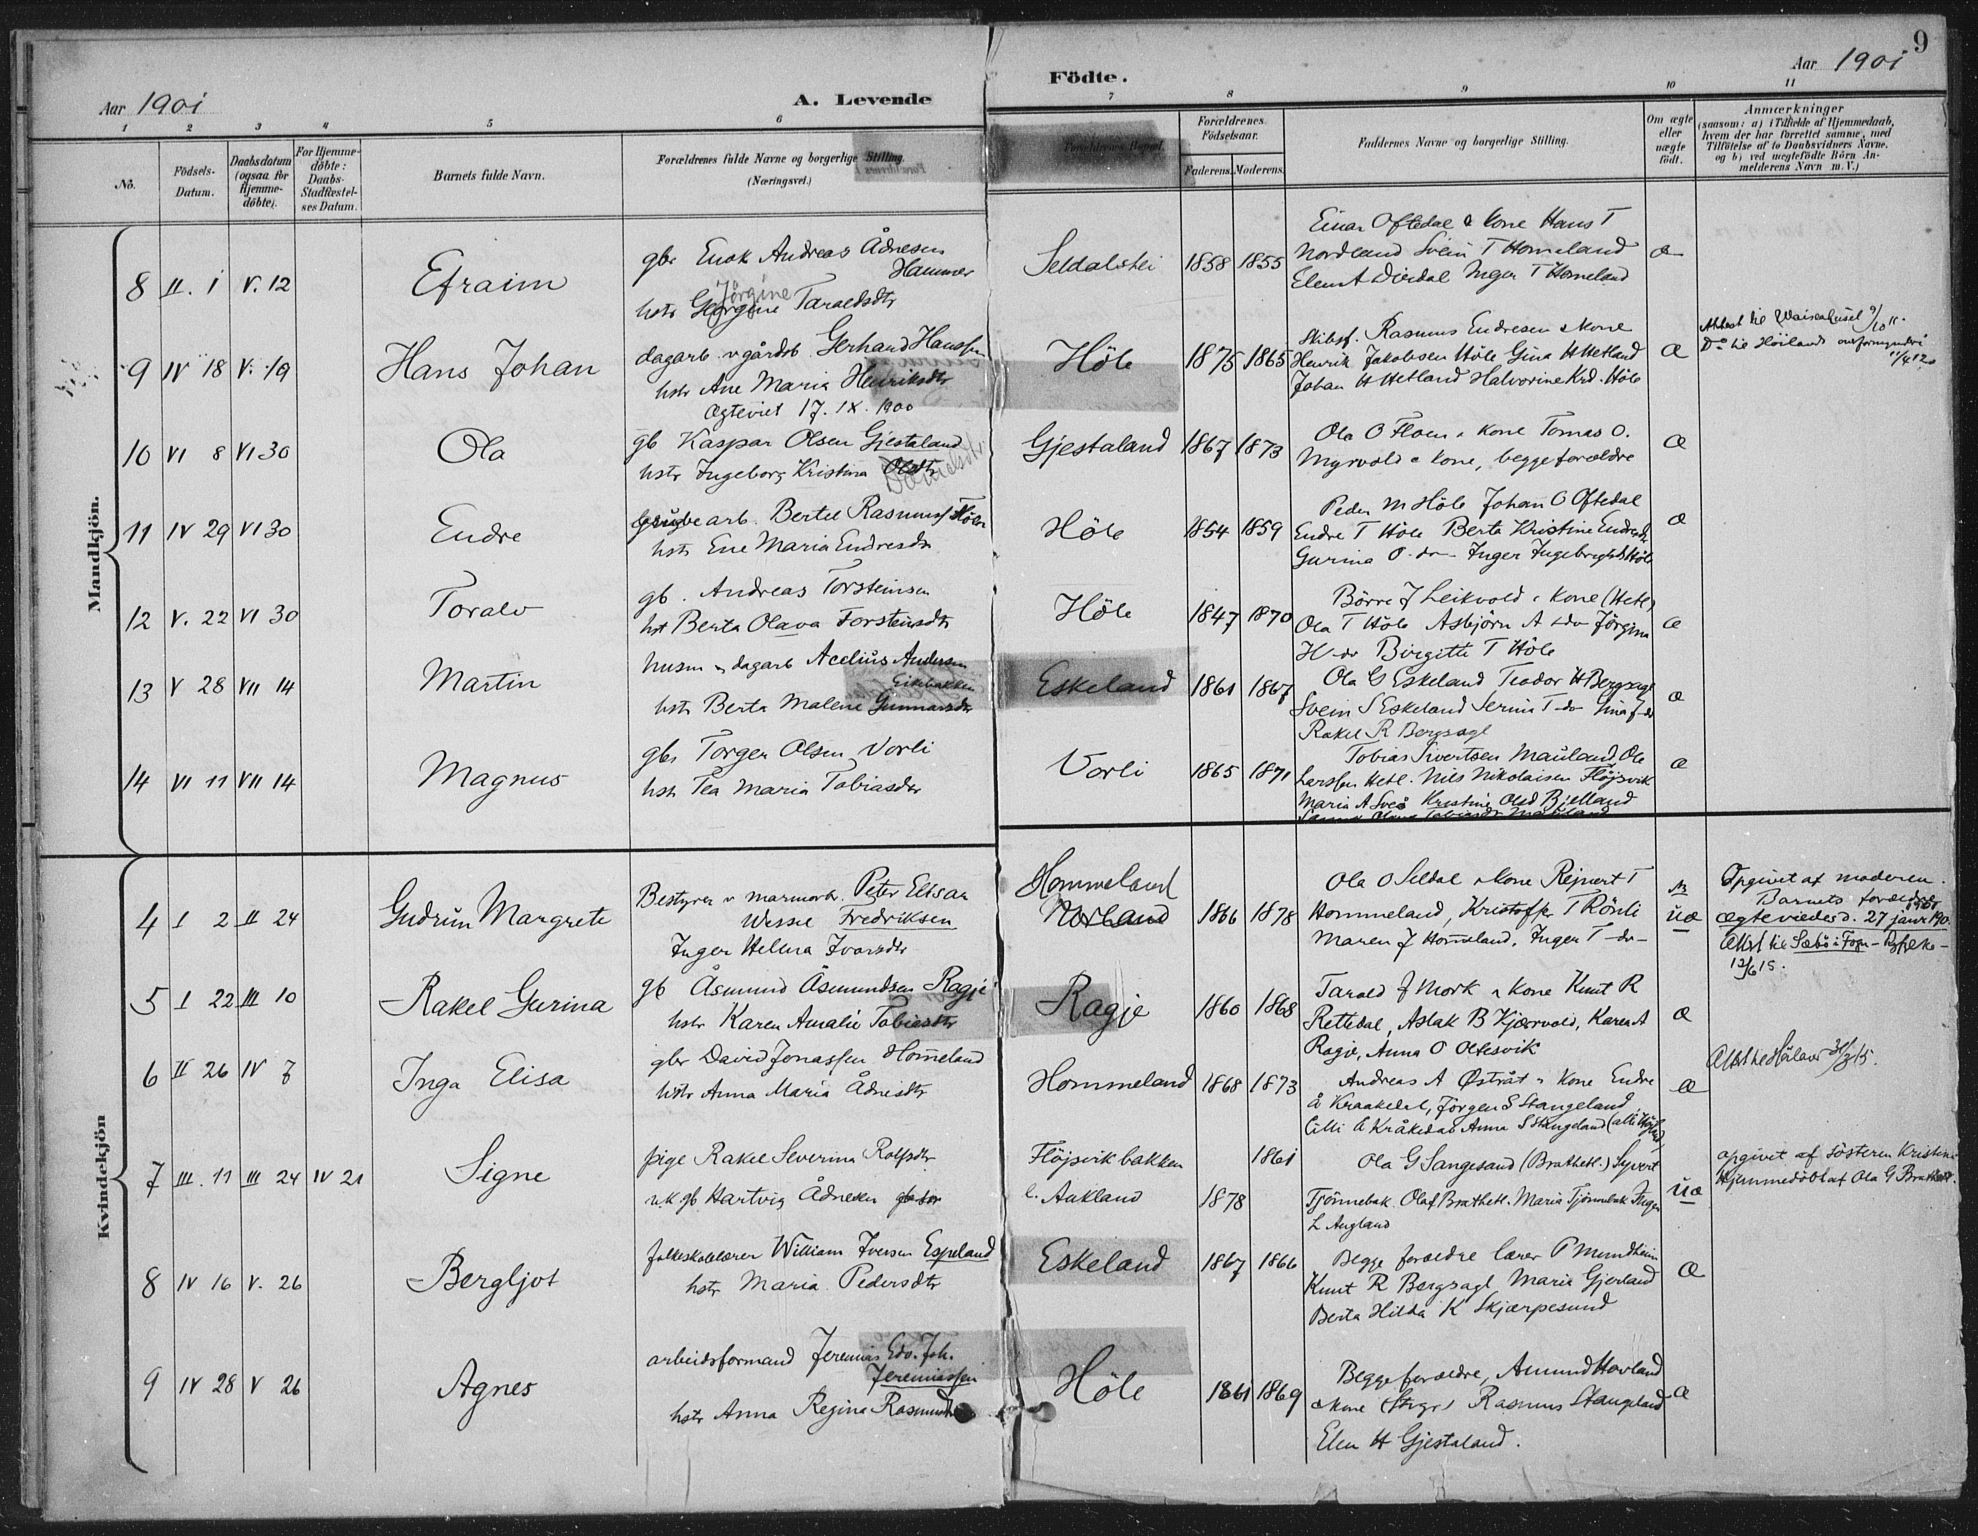 9
Aar 1901
A. Levende
Födte.
Aar 1901
1 2 3 4 5 6 7 8 9 10 11
No. Födsels-Datum. Daabsdatum (ogsaa for Hjemme-döbte). For Hjemme-döbte: Daabs-Stadfæstel-ses Datum. Barnets fulde Navn. Forældrenes fulde Navne og borgerlige Stilling. (Næringsvei.) Forældrenes Bopæl. Forældrenes Födselsaar. Faderens. Moderens. Faddernes Navne og borgerlige Stilling. Om ægte eller uægte födt.
Anmærkninger
(saasom: a) i Tilfælde af Hjemmedaab,
hvem der har forrettet samme, med
Tilföielse af to Daabsvidners Navne,
og b) ved uægtefödte Börn An-
melderens Navn m. V.)
Mandkjön.
8 II. 1 V. 12 Efraim
gbr Enok Andreas Ådnesen
Hammer
hstr Georgine Jörgine Taraldsdtr
Seldalshei 1858 1855
Einar Oftedal & kone Hans T
Nordland Svein T Homeland
Elen A Inger T Homeland
æ
9 IV 18 V. 19 Hans Johan
dagarb. v gårdsb. Gerhard Hanssen
hstr Ane Maria Henriksdtr
Ægteviet 17. IX. 1900
Höle 1875 1865
Skibsf. Rasmus Endresen & kone
Henrik Jakobsen Höle Gina H Hetland
Johan H Hetland Halvorine Krd. Höle
æ
Attest til Waisenhuset 9/10 11.
Do til Höilands
10 VI 8 VI 30 Ola
gb Kaspar Olsen Gjestaland
hstr Ingeborg Kristina Olsdtr Davidsdtr
Gjestaland 1867 1873
Ola O Floen & kone Tomas O.
Myrvold & kone, begge forældre
æ
11 IV 29 VI 30 Endre
arb. Bertel Rasmus Höle
hstr Ene Maria Endresdtr
Höle 1854 1859
Peder M Höle Johan O Oftedal
Endre T Höle Berta Kristine Endresdtr
Gurina O - do - Inger Ingebregtsd Höle
æ
12 V. 22 VI 30 Toralv
gb. Andreas Torsteinsen
hst Berta Olava Torsteinsdtr
Höle 1847 1870
Börre J Leikvold & kone (Hetl)
Ola T Höle Asbjörn A - do - Jörgina
H - do Birgitte T Höle
æ
13 V 28 VII 14 Martin
husm & dagarb Acelius Andersen
Eikebakken
hstr Berta Malene Gunnarsdtr
Eskeland 1861 1867
Ola G Eskeland Teodor H Bergsagl
Svein S Eskeland Serina T - do - Gina J - do
Rakel R Bergsagl
æ
14 VI 11 VII 14 Magnus
gbr Torger Olsen Vorli
hstr Tea Maria Tobiasdtr
Vorli 1865 1871
Tobias Sivertsen Mauland, Ole
Larssen Hetl. Nils Nikolaisen Flöjsvik
Maria A Kristine Olsd Bjelland
Tobiasdtr Mauland
æ
Kvindekjön
4 I 2 II 24 Gudrun Margrete
Bestyrer v marmorbr. Peter Elisar
Wessel Fredriksen
Inger Helena Ivarsdtr
Hommeland
Norland 1866 1878
Ola O Seldal & kone Rejnert T
Hommeland, Kristoffer T Rönli
Maren J Homeland, Inger T - do -
uæ
Opgivet af moderen.
Barnets forældre
ægteviedes d. 27 janr 1901
Attest til Sæbö i Fogn -
12/6 15.
5 I 22 III 10 Rakel Gurina
gb Åsmund Åsmundsen Ragje
hstr Karen Amalie Tobiasdtr
Ragje 1860 1868
Tarald J Mork & kone Knut R
Rettedal, Aslak B Kjærvold, Karen A
Ragje, Anna O Oltesvik
æ
6 II 26 IV 7 Inga Elisa
gbr David Jonassen Homeland
hstr Anna Maria Ådnesdtr
Hommeland 1868 1873
Andreas A Østråt & kone Endre
Å Kraakedal, Jörgen S Stangeland
Cilli Å Kråkedal Anna S Stangeland
æ
7 III. 11 III 24 IV 21 Signe
pige Rakel Severina Rolfsdtr
u.k. gb Hartvig Ådnesen
Flöjsvikbakken 1861
e. Aukland 1878
Ola G Sangesand (Brathetl.) Syvert
Tjönnebak. Olaf Brathetl. Maria Tjönnebak Inger
L Augland
uæ
opgivet af söstern Kristine
Hjemmedöbt af Ola G Brathetl.
8 IV 16 V. 26 Bergljot
folkeskolelærer William Iversen Espeland
hstr Maria Pedersdtr
Eskeland 1867 1866
Begge forældre lærer P Mundheim
Knut R Bergsagl Maria Gjerland
Berta Hilda K Skjærpesund
æ
9 IV 28 V 26 Agnes
arbeidsformand Jeremias Edv. Joh.
Jeremiassen
hstr Anna Regina Rasmusdtr
Höle 1861 1869
Begge forældre, Amund Hovland
& kone Rasmus Stangeland
Elen H Gjestaland.
æ